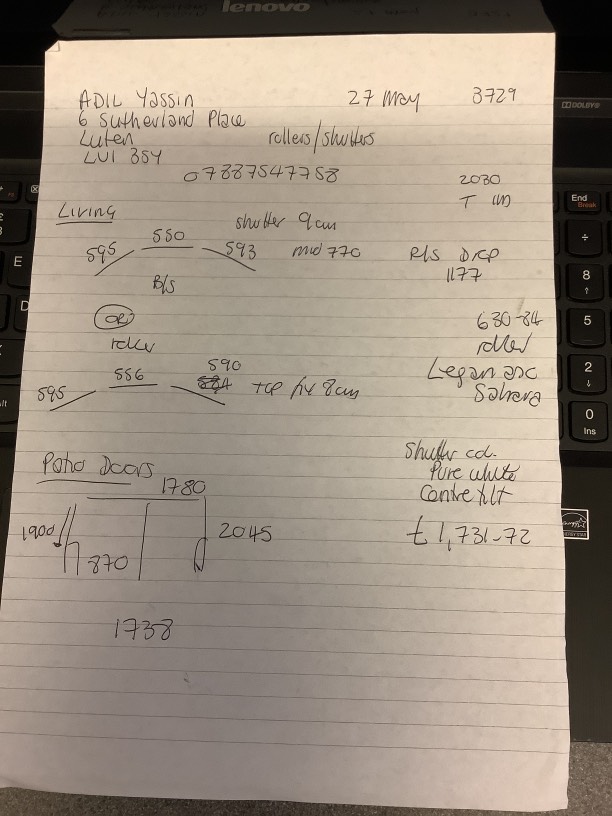 lenovo
ADIL Yassin 27 May 3729
6 Sutherland Place
Luten rollers/shutters
LU1 3SY
07887547758
2030
Living shutter 9cm
595 550 593 mid 770 R/s Drop
1177
B/s
OR 630-84
roller roller
590
595 556 top fix 8cm
Sahara
Patio Doors Shutter col.
Pure white
1780 Centre tilt
1900 2045 £1,731-72
870
1738
DOLBY
End
Break
E
8
D
5
2
0
Ins
ENERGY STAR